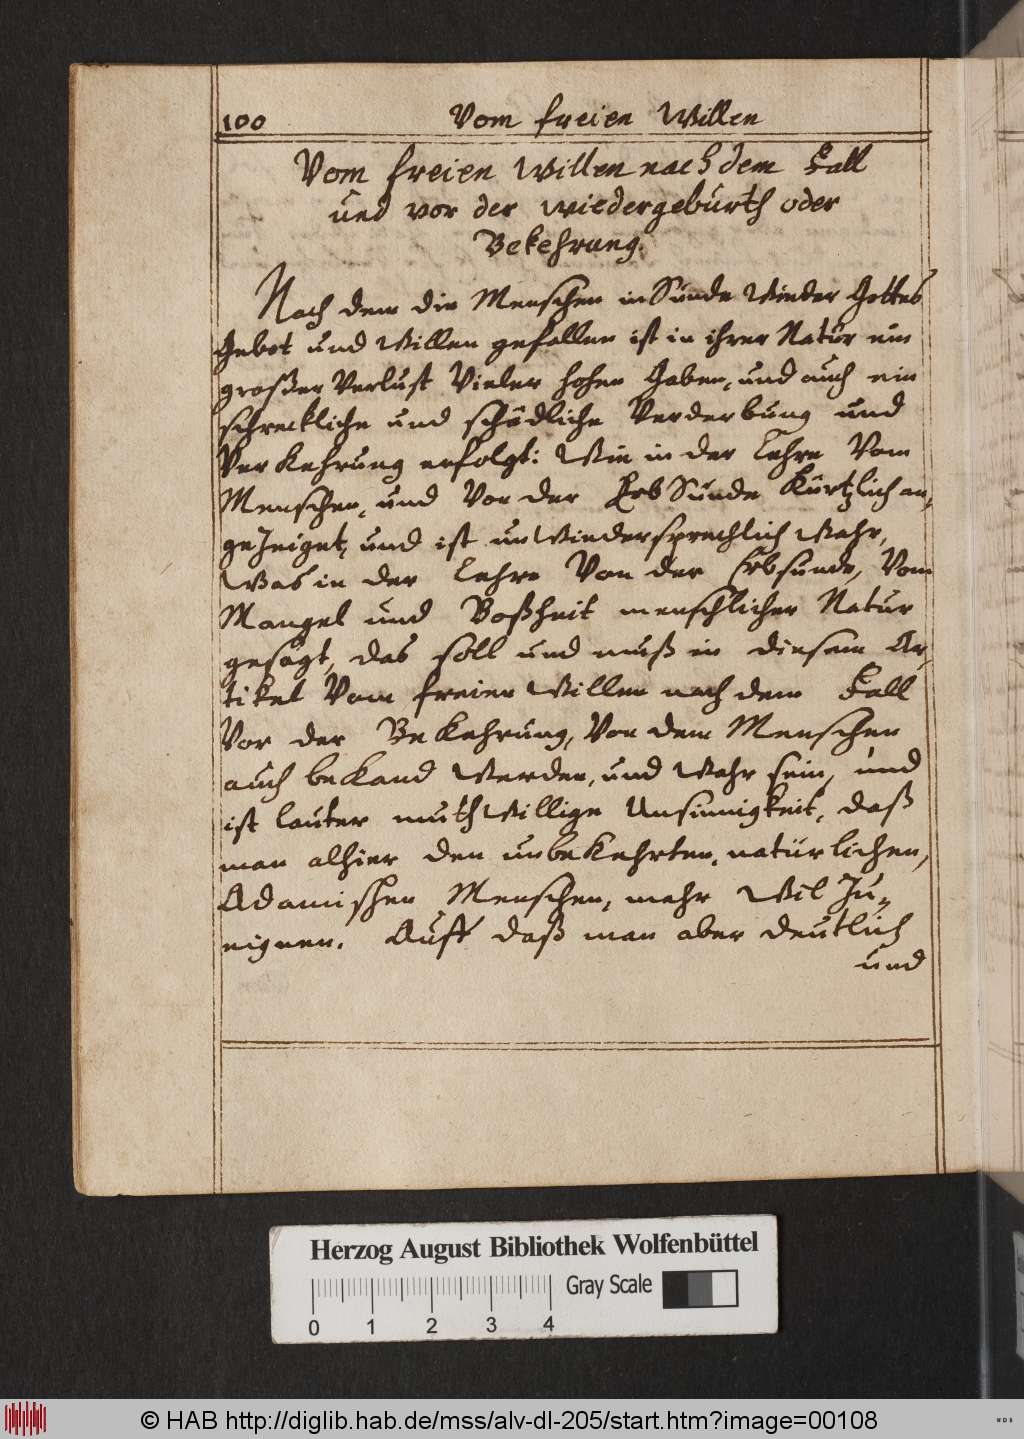 100 Vom freien Willen
Vom freien Willen nach dem Fall
und vor der wiedergeburth oder
Bekehrung.
Nach dem die Menschen in Sünde Wieder Gottes
Gebot und Willen gefallen ist in ihrer Natur ein
großer Verlust Vieler hohen Gaben, und auch ein
schreckliche und schädliche Verderbung und
Verkehrung erfolgt: Wie in der Lehre Vom
Menschen, und Von der ErbSünde Kürtzlich an-
geZeiget, und ist unWiedersprechlich Wahr,
Was in der Lehre Von der Erbsünde, Vom
Mangel und Boßheit menschlicher Natur
gesagt, das soll und muß in diesem Ar-
tikel Vom freien Willen nach dem Fall
Vor der BeKehrung, Von dem Menschen
auch beKand Werden, und Wahr sein, und
ist lauter muthWillige Unsinnigkeit, daß
man alhier den unbeKehrten, natürlichen,
Adamischen Menschen, mehr Wil Zu-
eignen. Auff daß man aber deutlich
und
Herzog August Bibliothek Wolfenbüttel
0 1 2 3 4 Gray Scale
© HAB http://diglib.hab.de/mss/alv-dl-205/start.htm?image=00108